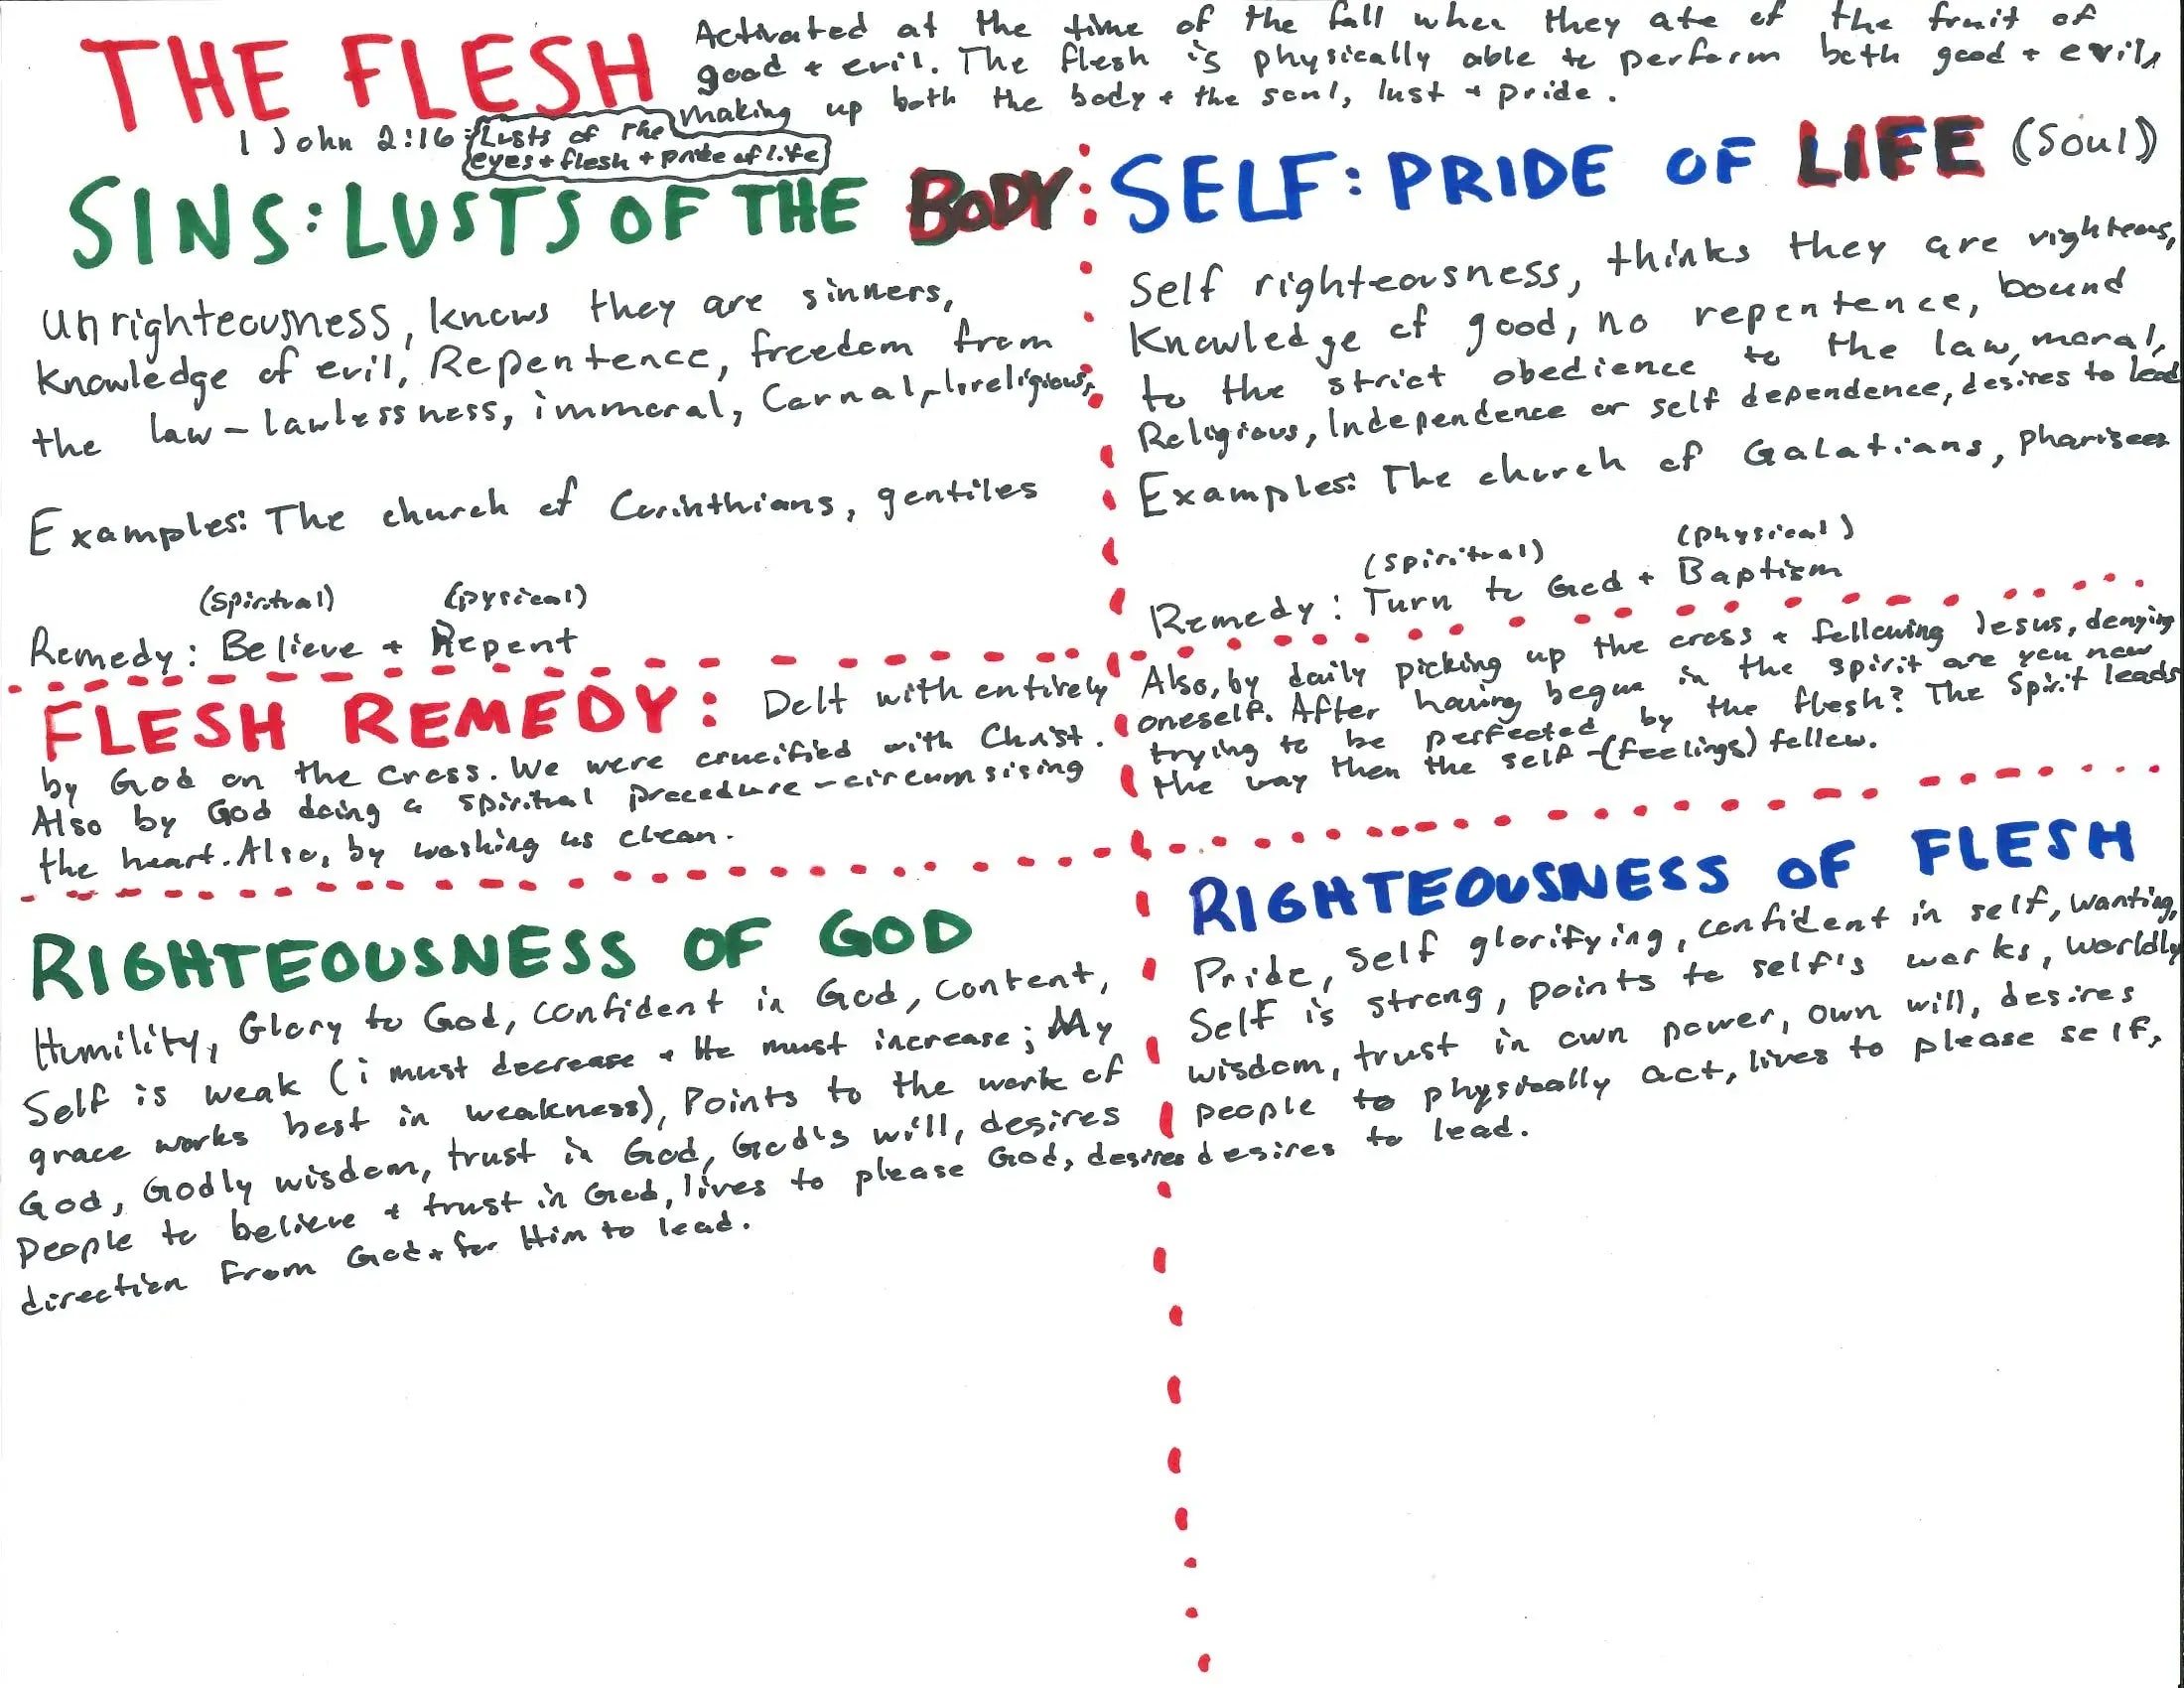 THE FLESH
Activated at the time of the fall when they ate of the fruit of
good + evil. The flesh is physically able to perform both good + evil,
making up both the body + the soul, lust + pride.
1 John 2:16: Lusts of the
eyes + flesh + pride of life
SINS: LUSTS OF THE BODY:
unrighteousness, knows they are sinners,
Knowledge of evil, Repentence, freedom from
the law - lawlessness, immoral, Carnal, Irreligious,
Examples: The church of Corinthians, gentiles
(spiritual) (pysical)
Remedy: Believe + Repent
SELF: PRIDE OF LIFE (Soul)
Self righteousness, thinks they are righteous,
Knowledge of good, no repentence, bound
to the strict obedience to the law, moral,
Religious, Independence or self dependence, desires to lead
Examples: The church of Galatians, pharisees
(spiritual) (physical)
Remedy: Turn to God + Baptism
FLESH REMEDY: Delt with entirely
by God on the cross. We were crucified with Christ.
Also by God doing a spiritual procedure - circumsising
the heart. Also, by washing us clean.
Also, by daily picking up the cross + following Jesus, denying
oneself. After having begun in the spirit are you now
trying to be perfected by the flesh? The Spirit leads
the way then the self - (feelings) follow.
RIGHTEOUSNESS OF GOD
Humility, Glory to God, confident in God, content,
Self is weak (i must decrease + He must increase; My
grace works best in weakness), Points to the work of
God, Godly wisdom, trust in God, God's will, desires
People to believe + trust in God, lives to please God, desires
direction From God + for Him to lead.
RIGHTEOUSNESS OF FLESH
Pride, Self glorifying, confident in self, wanting,
Self is strong, points to self's works, worldly
wisdom, trust in own power, own will, desires
people to physically act, lives to please self,
desires to lead.